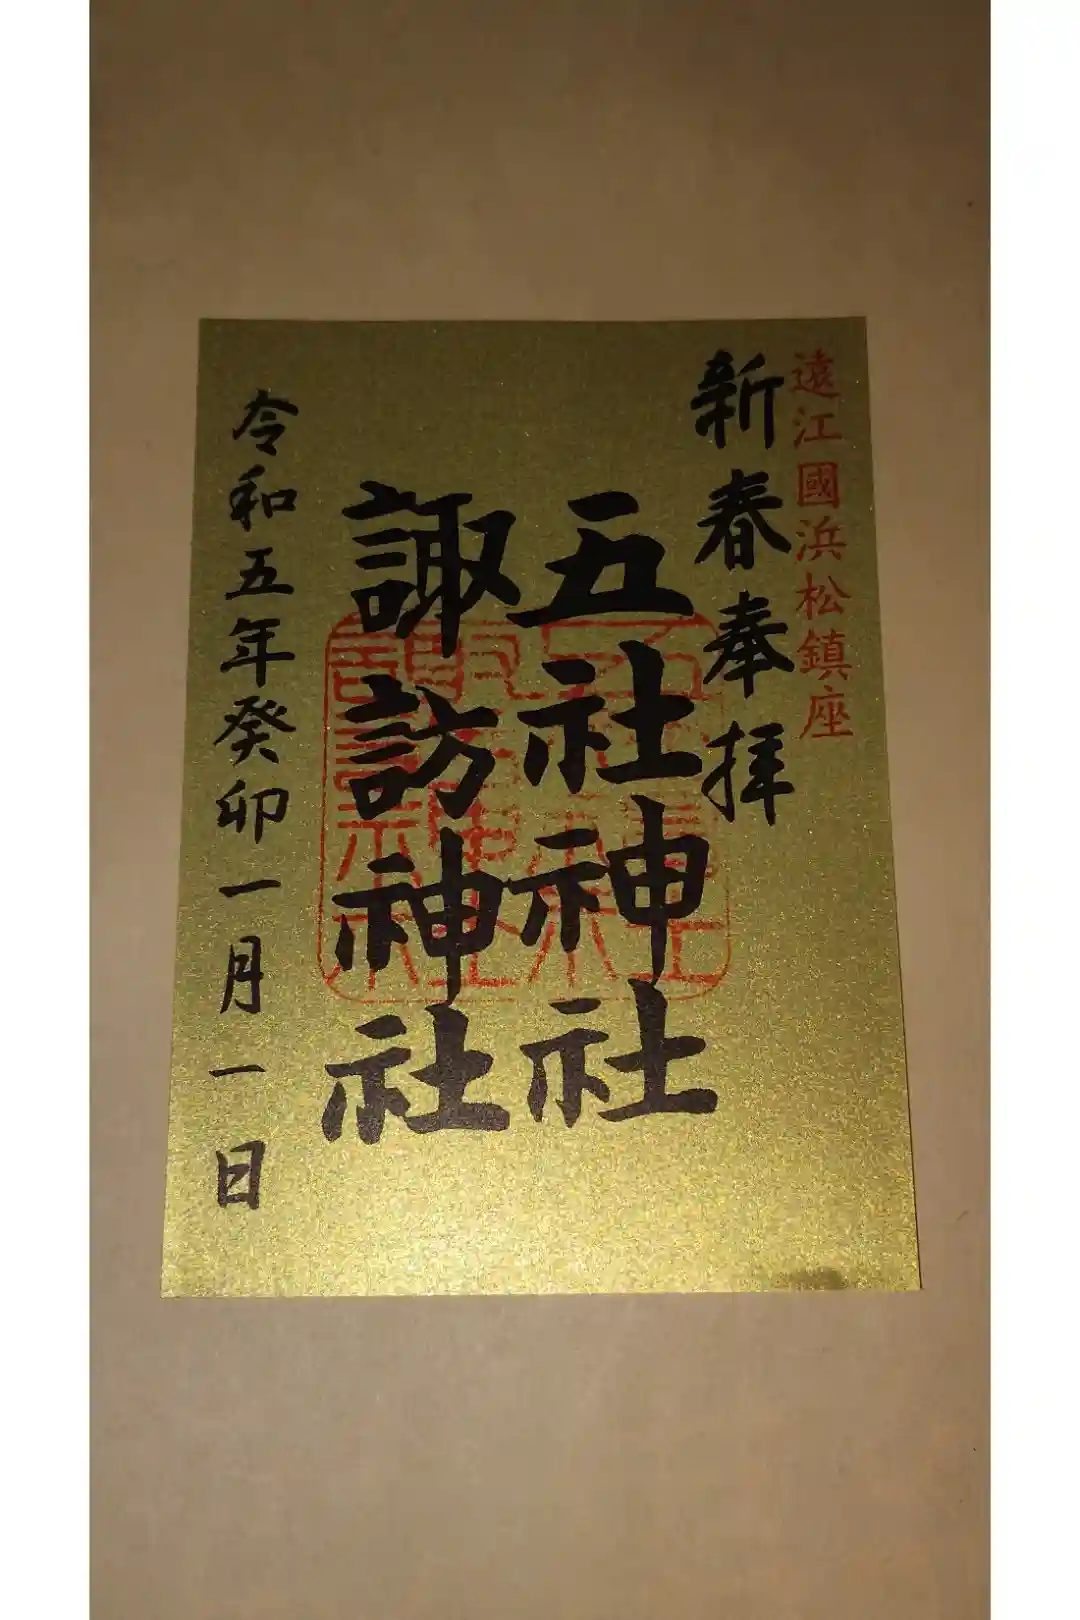 遠江國浜松鎮座
新春奉拝
五社神社
諏訪神社
令和五年癸卯一月一日